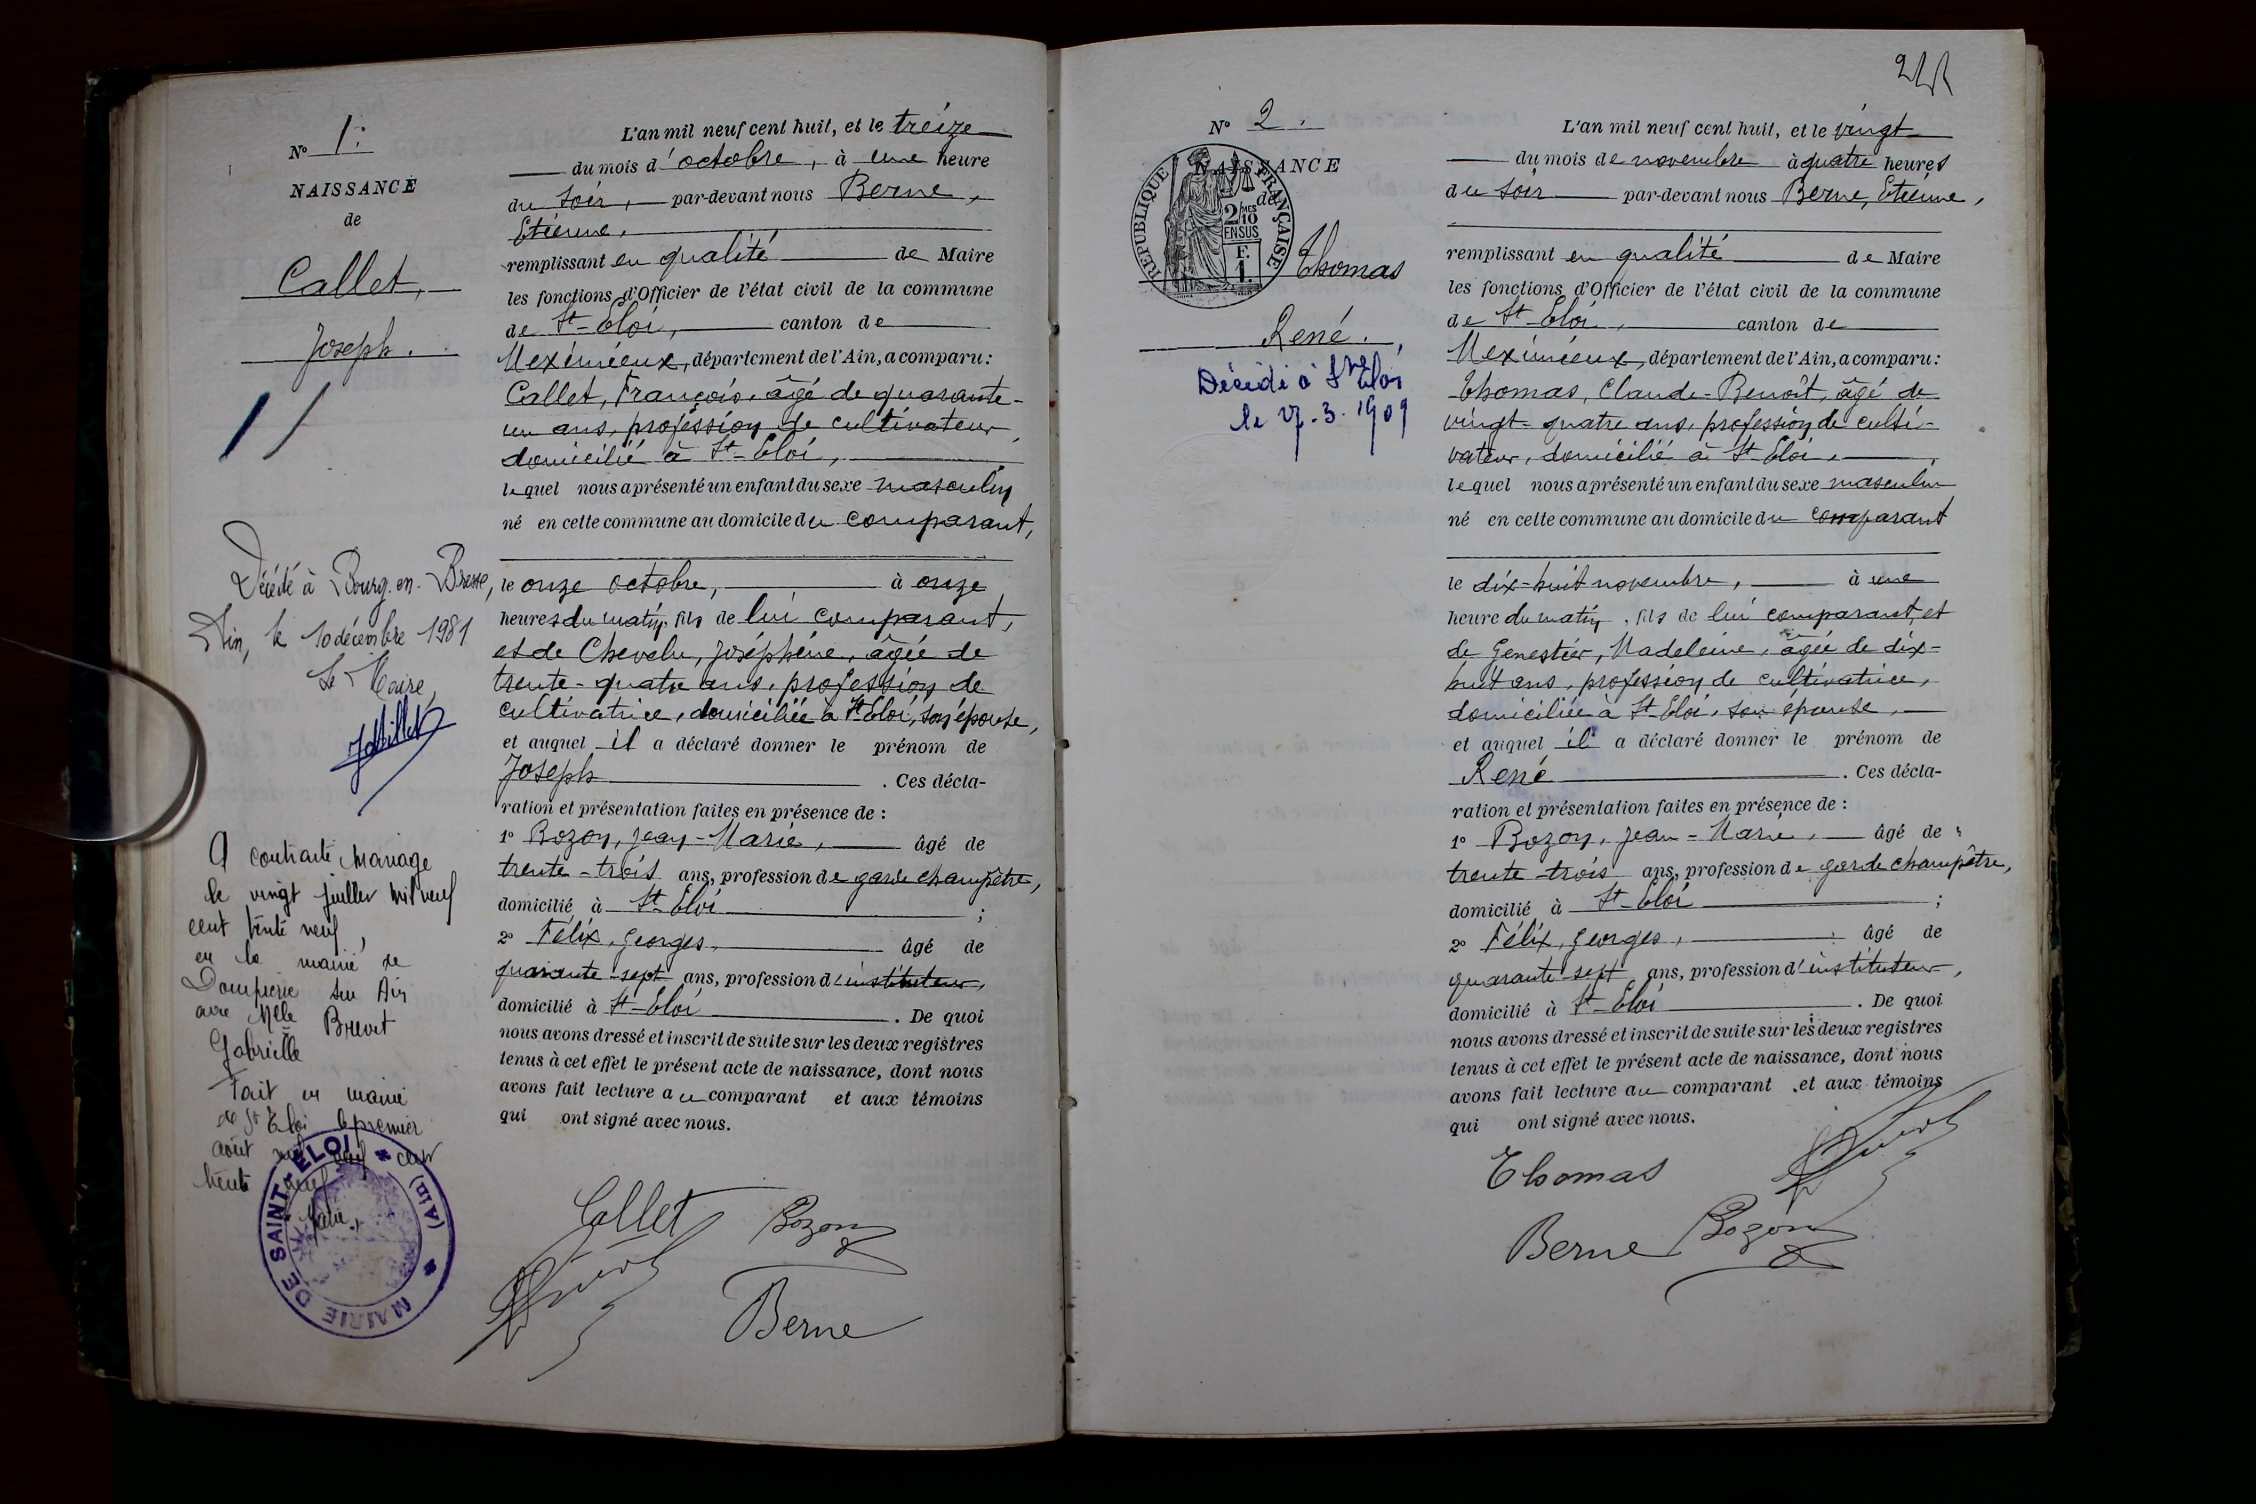 N° 1.
NAISSANCE
de
Callet,
Joseph.
Décédé à Bourg-en-Bresse,
Ain, le 10 décembre 1981
Le Maire,
A contracté mariage
le vingt juillet mil neuf
cent trente neuf,
en la mairie de
Dompierre sur Ain
avec Melle
Gabrielle
Fait en mairie
de St Eloi le premier
août mil neuf cent
trente neuf
MAIRIE DE SAINT-ELOI * (Ain) *
L'an mil neuf cent huit, et le treize
du mois d'octobre, à une heure
du soir, par-devant nous Berne,
Etienne,
remplissant en qualité de Maire
les fonctions d'Officier de l'état civil de la commune
de St-Eloi, canton de
Meximieux, département de l'Ain, a comparu :
Callet, François, âgé de quarante-
un ans, profession de cultivateur,
domicilié à St-Eloi,
lequel nous a présenté un enfant du sexe masculin
né en cette commune au domicile du comparant,
le onze octobre, à onze
heures du matin, fils de lui comparant,
et de Chevelu, Joséphine, âgée de
trente-quatre ans, profession de
cultivatrice, domiciliée à St Eloi, son épouse,
et auquel il a déclaré donner le prénom de
Joseph. Ces décla-
ration et présentation faites en présence de :
1° Bozon, Jean-Marie, âgé de
trente-trois ans, profession de garde champêtre,
domicilié à St-Eloi ;
2° Félix, Georges, âgé de
quarante-sept ans, profession d'instituteur,
domicilié à St-Eloi. De quoi
nous avons dressé et inscrit de suite sur les deux registres
tenus à cet effet le présent acte de naissance, dont nous
avons fait lecture au comparant et aux témoins
qui ont signé avec nous.
Callet Bozon
Berne
N° 2.
NAISSANCE
de
RÉPUBLIQUE FRANÇAISE
2/10 MES
EN SUS
F.
1.
Thomas
René.
Décédé à St Eloi
le 27.3.1909
L'an mil neuf cent huit, et le vingt
du mois de novembre à quatre heures
du soir par-devant nous Berne, Etienne,
remplissant en qualité de Maire
les fonctions d'Officier de l'état civil de la commune
de St-Eloi, canton de
Meximieux, département de l'Ain, a comparu :
Thomas, Claude-Benoît, âgé de
vingt-quatre ans, profession de culti-
vateur, domicilié à St Eloi,
lequel nous a présenté un enfant du sexe masculin
né en cette commune au domicile du comparant
le dix-huit novembre, à une
heure du matin, fils de lui comparant, et
de Genestier, Madeleine, âgée de dix-
huit ans, profession de cultivatrice,
domiciliée à St-Eloi, son épouse,
et auquel il a déclaré donner le prénom de
René. Ces décla-
ration et présentation faites en présence de :
1° Bozon, Jean-Marie, âgé de
trente-trois ans, profession de garde champêtre,
domicilié à St-Eloi ;
2° Félix, Georges, âgé de
quarante-sept ans, profession d'instituteur,
domicilié à St-Eloi. De quoi
nous avons dressé et inscrit de suite sur les deux registres
tenus à cet effet le présent acte de naissance, dont nous
avons fait lecture au comparant, et aux témoins
qui ont signé avec nous.
Thomas
Berne Bozon